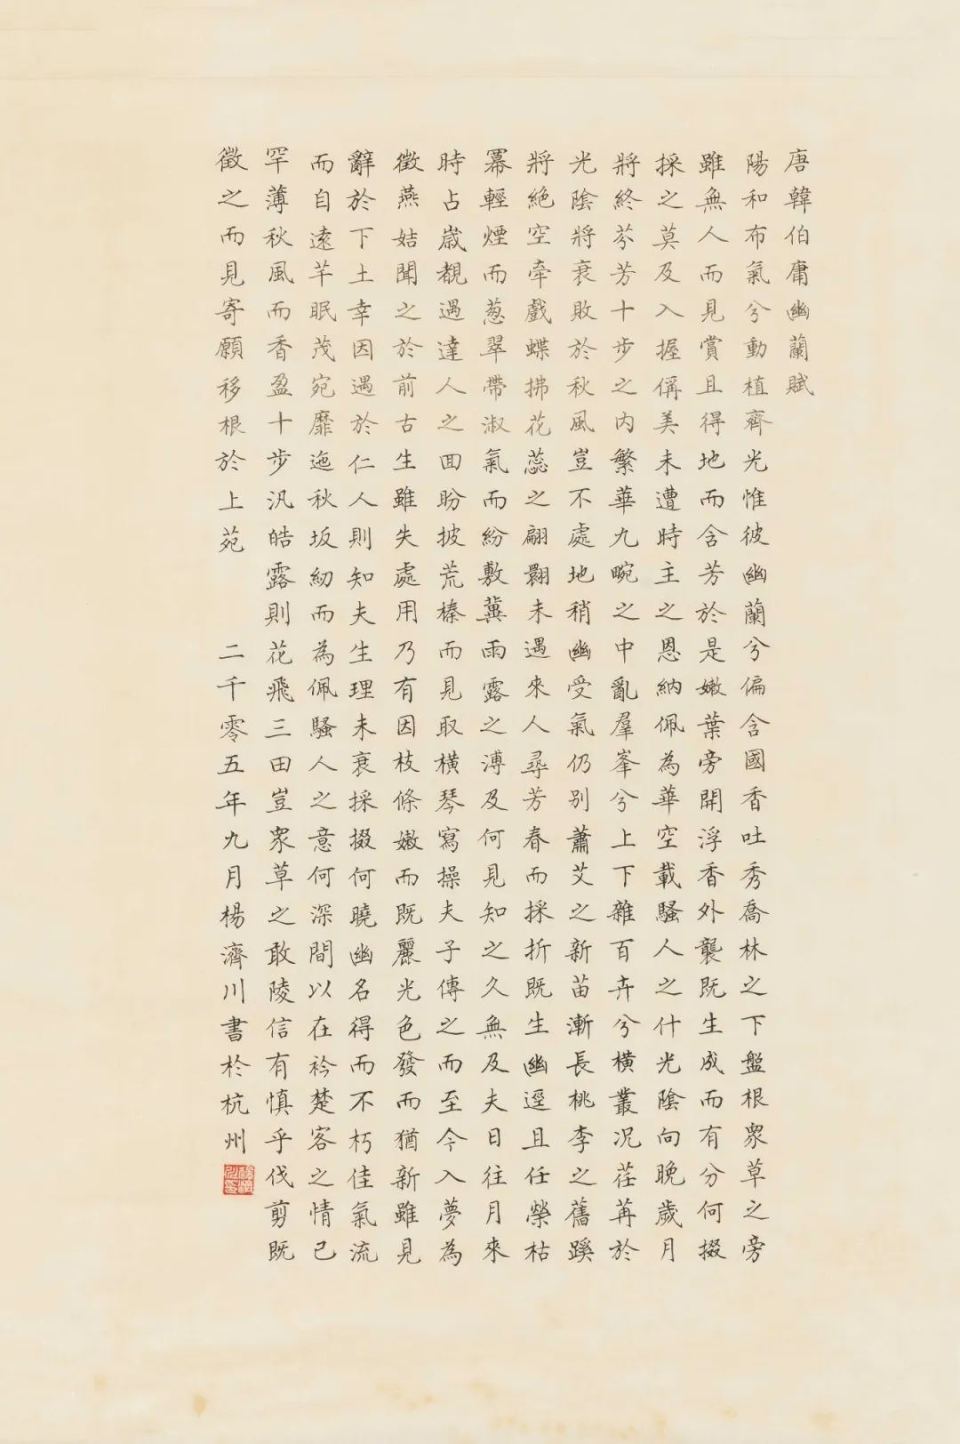 唐韓伯庸幽蘭賦
陽和布氣兮動植齊光惟彼幽蘭兮偏含國香吐秀喬林之下盤根眾草之旁
雖無人而見賞且得地而含芳於是嫩葉旁開浮香外襲既生成而有分何掇
採之莫及入握偁美未遭時主之恩納佩為華空載騷人之什光陰向晚歲月
將終芬芳十步之內繁華九畹之中亂羣峯兮上下雜百卉兮橫叢況荏苒於
光陰將衰敗於秋風豈不處地稍幽受氣仍別蕭艾之新苗漸長桃李之舊蹊
將絕空牽戲蝶拂花蕊之翩翾未遇來人尋芳春而採折既生幽逕且任榮枯
羃輕煙而葱翠帶淑氣而紛敷冀雨露之溥及何見知之久無及夫日往月來
時占歲覩遇達人之回盼披荒榛而見取橫琴寫操夫子傳之而至今入夢為
徵燕姞聞之於前古生雖失處用乃有因枝條嫩而既麗光色發而猶新雖見
辭於下土幸因遇於仁人則知夫生理未衰採掇何曉幽名得而不朽佳氣流
而自遠芊眠茂宛靡迤秋坂紉而為佩騷人之意何深間以在衿楚客之情已
罕薄秋風而香盈十步汎皓露則花飛三田豈眾草之敢陵信有慎乎伐剪既
徵之而見寄願移根於上苑 二千零五年九月楊濟川書於杭州